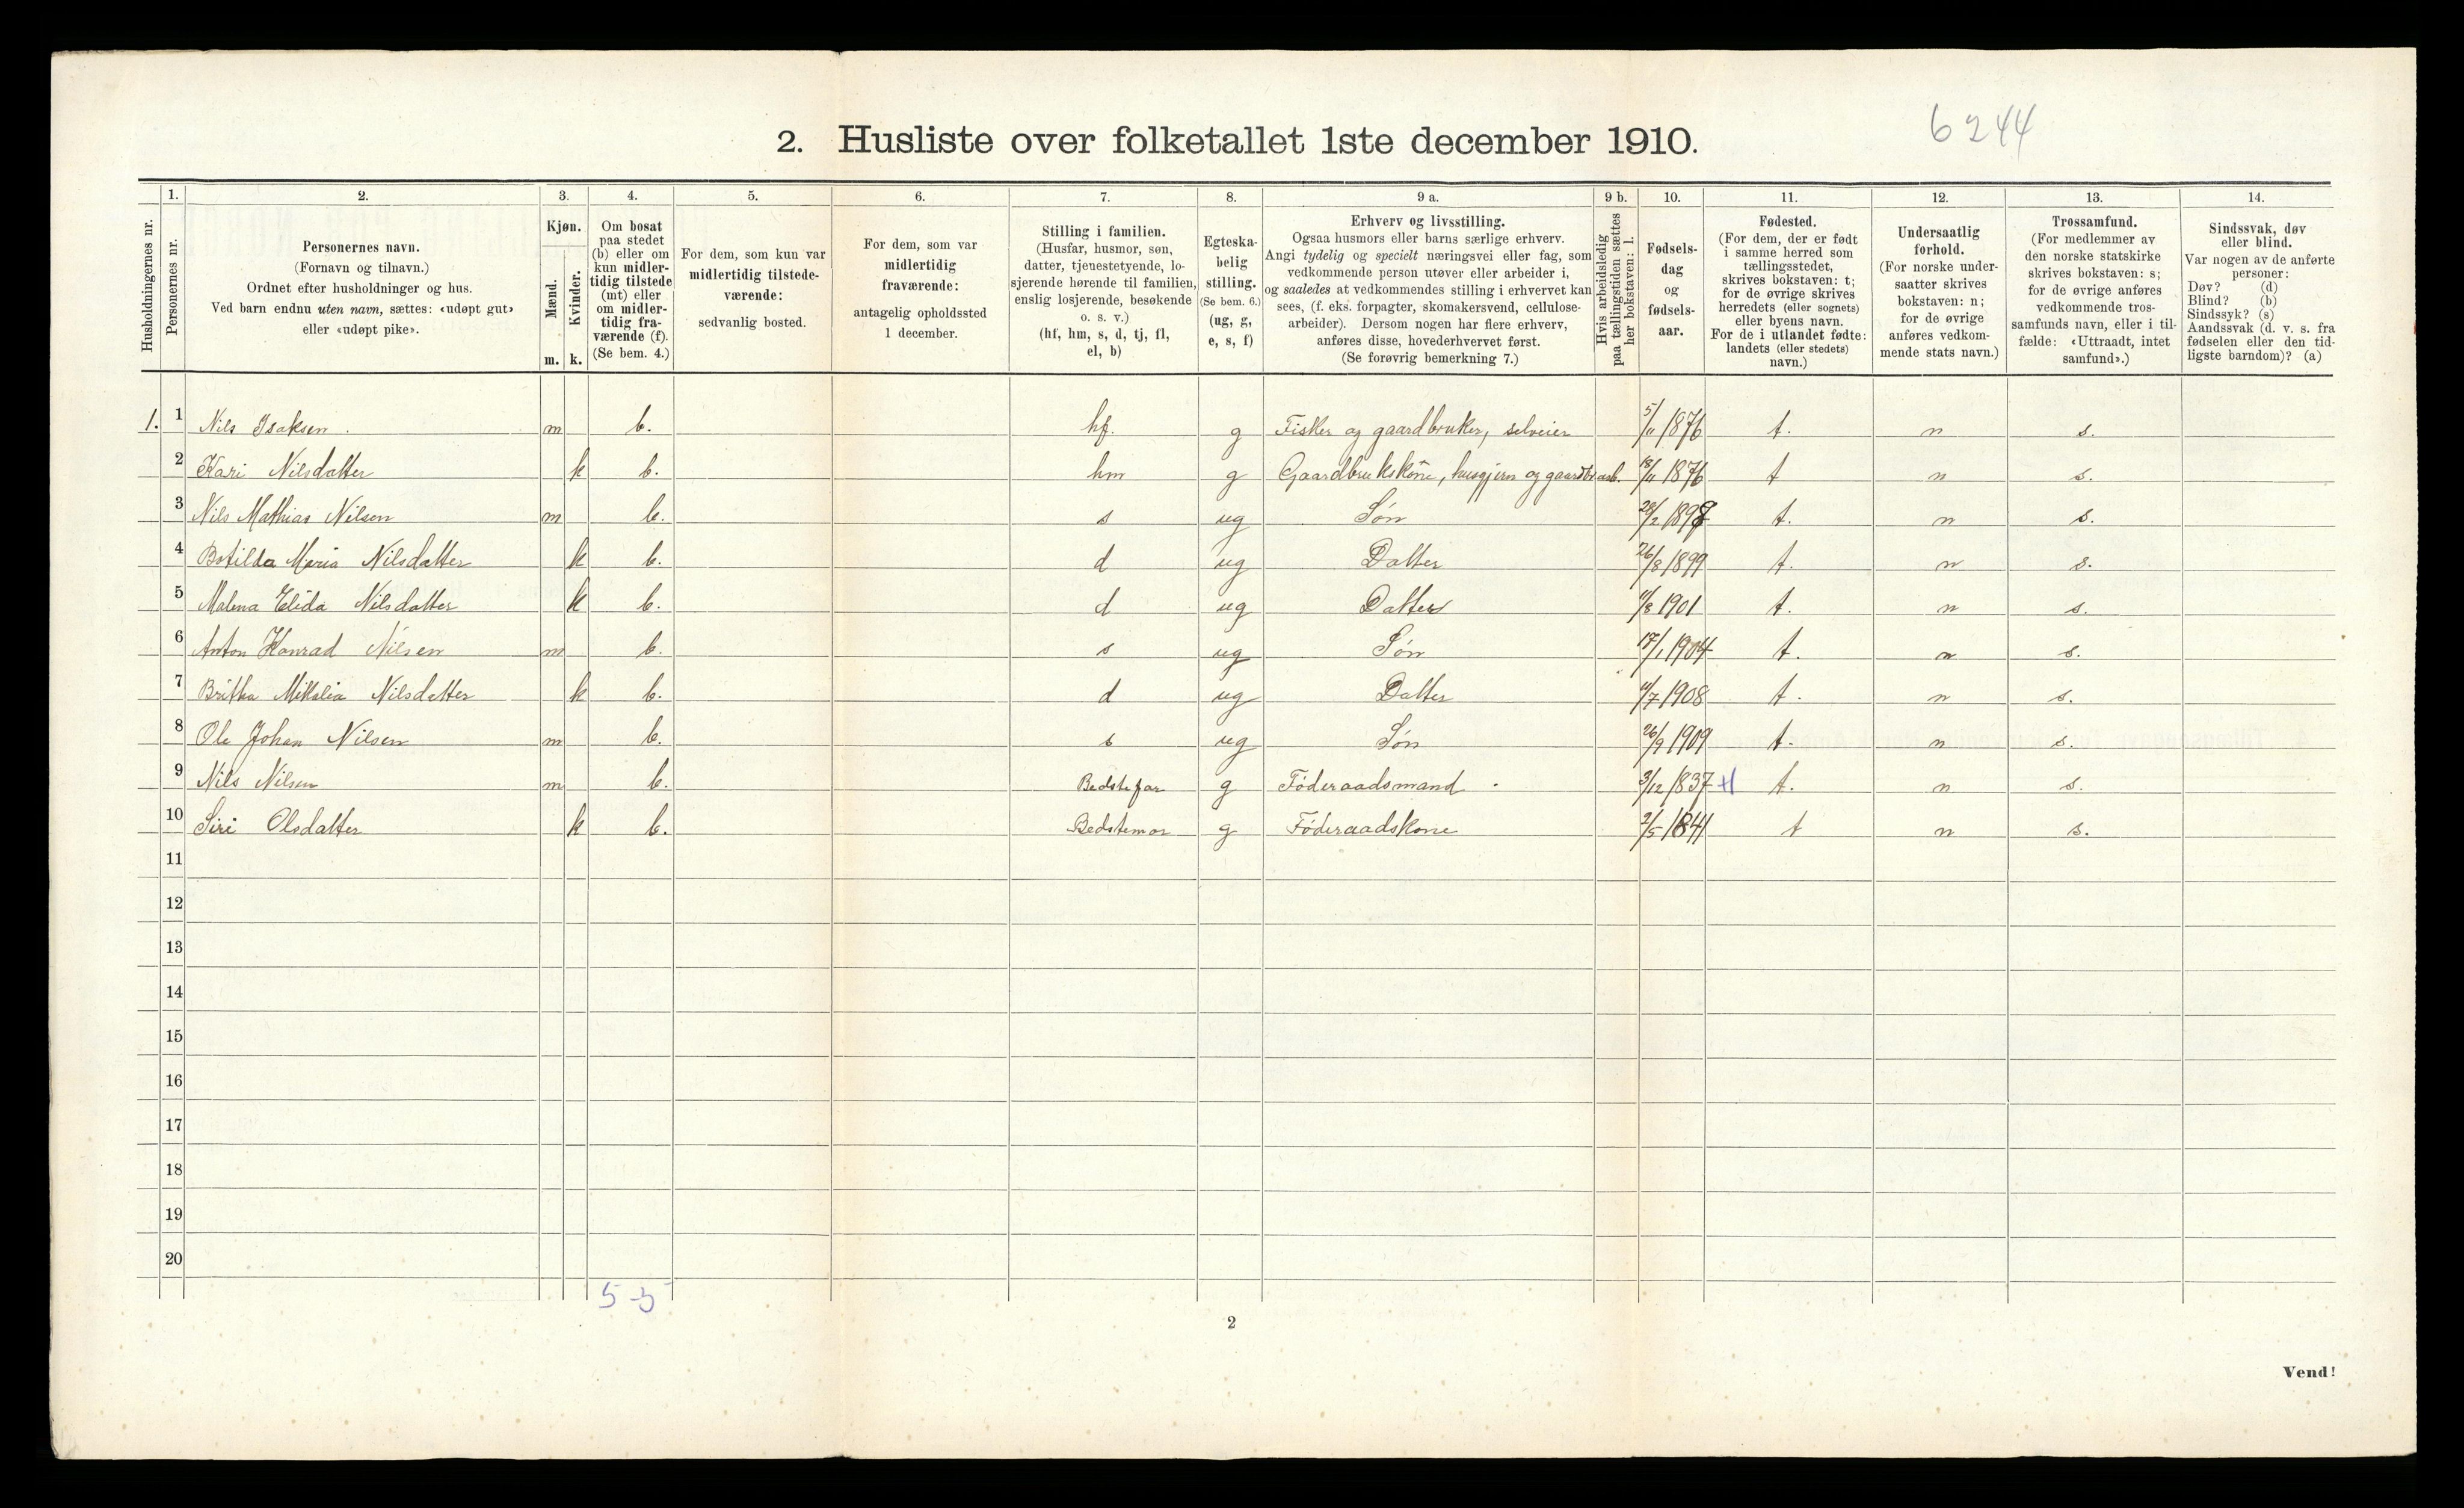 6244
2. Husliste over folketallet 1ste december 1910.
Husholdningernes nr.
1.
Personernes nr.
2.
Personernes navn.
(Fornavn og tilnavn.)
Ordnet efter husholdninger og hus.
Ved barn endnu uten navn, sættes: «udøpt gut»
eller «udøpt pike».
3.
Kjøn.
Mænd.
m.
Kvinder.
k.
4.
Om bosat
paa stedet
(b) eller om
kun midler-
tidig tilstede
(mt) eller
om midler-
tidig fra-
værende (f).
(Se bem. 4.)
5.
For dem, som kun var
midlertidig tilstede-
værende:
sedvanlig bosted.
6.
For dem, som var
midlertidig
fraværende:
antagelig opholdssted
1 december.
7.
Stilling i familien.
(Husfar, husmor, søn,
datter, tjenestetyende, lo-
sjerende hørende til familien,
enslig losjerende, besøkende
o. s. v.)
(hf, hm, s, d, tj, fl,
el, b)
8.
Egteska-
belig
stilling.
(Se bem. 6.)
(ug, g,
e, s, f)
9 a.
Erhverv og livsstilling.
Ogsaa husmors eller barns særlige erhverv.
Angi tydelig og specielt næringsvei eller fag, som
vedkommende person utøver eller arbeider i,
og saaledes at vedkommendes stilling i erhvervet kan
sees, (f. eks. forpagter, skomakersvend, cellulose-
arbeider). Dersom nogen har flere erhverv,
anføres disse, hovederhvervet først.
(Se forøvrig bemerkning 7.)
9 b.
Hvis arbeidsledig
paa tællingstiden sættes
her bokstaven: l.
10.
Fødsels-
dag
og
fødsels-
aar.
11.
Fødested.
(For dem, der er født
i samme herred som
tællingsstedet,
skrives bokstaven: t;
for de øvrige skrives
herredets (eller sognets)
eller byens navn.
For de i utlandet fødte:
landets (eller stedets)
navn.)
12.
Undersaatlig
forhold.
(For norske under-
saatter skrives
bokstaven: n;
for de øvrige
anføres vedkom-
mende stats navn.)
13.
Trossamfund.
(For medlemmer av
den norske statskirke
skrives bokstaven: s;
for de øvrige anføres
vedkommende tros-
samfunds navn, eller i til-
fælde: «Uttraadt, intet
samfund».)
14.
Sindssvak, døv
eller blind.
Var nogen av de anførte
personer:
Døv? (d)
Blind? (b)
Sindssyk? (s)
Aandssvak (d. v. s. fra
fødselen eller den tid-
ligste barndom)? (a)
1. 1 Nils Isaksen. m b. hf. g Fisker og gaardbruker, selveier 5/11 1876 t. n s.
2 Kari Nilsdatter k b. hm g Gaardbrukskone, husgjern og gaardsarb. 18/11 1876 t n s.
3 Nils Mathias Nilsen m b. s ug Søn 28/2 1898 t. n s.
4 Botilda Maria Nilsdatter k b. d ug Datter 26/8 1899 t. n s.
5 Malena Elida Nilsdatter k b. d ug Datter 11/8 1901 t. n s.
6 Anton Konrad Nilsen m b. s ug Søn 17/1 1904 t. n s.
7 Britha Mikalia Nilsdatter k b. d ug Datter 11/7 1908 t. n s.
8 Ole Johan Nilsen m b. s ug Søn 26/9 1909 t. n s.
9 Nils Nilsen m b. Bedstefar g Föderaadsmand 3/12 1837 t. n s.
10 Siri Olsdatter k b. Bedstemor g Föderaadskone 2/5 1841 t n s.
11
12
13
14
15
16
17
18
19
20
5-5
2
Vend!